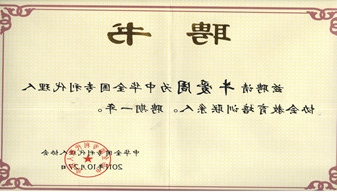 聘书
兹聘请牛爱周为中华全国专利代理人
协会教育培训联系人。聘期一年。
中华全国专利代理人协会
2011年10月27日